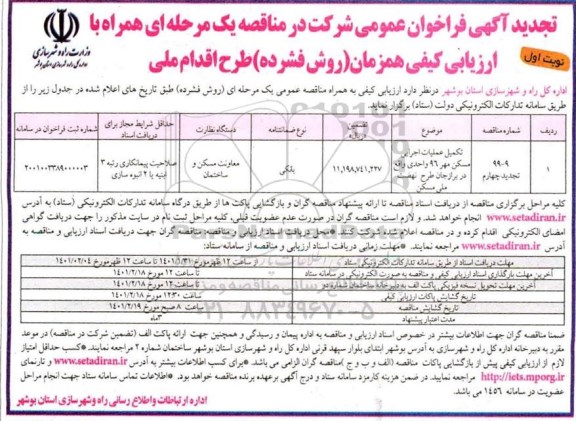 تجدید آگهی فراخوان عمومی شرکت در مناقصه یک مرحله ای همراه با
ارزیابی کیفی همزمان (روش فشرده) طرح اقدام ملی
وزارت راه و شهرسازی
نوبت اول
اداره کل راه و شهرسازی استان بوشهر درنظر دارد ارزیابی کیفی به همراه مناقصه عمومی یک مرحله ای (روش فشرده) طبق تاریخ های اعلام شده در جدول زیر را از
طریق سامانه تدارکات الکترونیکی دولت (ستاد) برگزار نماید
ردیف
شماره مناقصه
موضوع
تضمین
نوع ضمانتنامه
دستگاه نظارت
حداقل شرایط مجاز برای دریافت اسناد
شماره ثبت فراخوان در سامانه
۱
۹۹-۹ تجدید چهارم
تکمیل عملیات اجرایی مسکن مهر ۹۶ واحدی واقع در برازجان طرح نهضت ملی مسکن
۱۱,۱۹۸,۷۴۱,۲۲۷
بانکی
معاونت مسکن و ساختمان
صلاحیت پیمانکاری رتبه ۳ ابنیه یا ۲ انبوه سازی
۲۰۰۱۰۰۳۳۸۹۰۰۰۰۰۳
کلیه مراحل برگزاری مناقصه از دریافت اسناد مناقصه تا ارائه پیشنهاد مناقصه گران و بازگشایی پاکت ها از طریق درگاه سامانه تدارکات الکترونیکی (ستاد) به آدرس
www.setadiran.ir انجام خواهد شد. و لازم است مناقصه گران در صورت عدم عضویت قبلی، کلیه مراحل ثبت نام در سایت مذکور را جهت دریافت گواهی
امضای الکترونیکی اقدام کرده و در مناقصه اعلام شده شرکت کنند.
آدرس www.setadiran.ir مراجعه نمایند. *مهلت زمانی دریافت اسناد ارزیابی و مناقصه از سامانه ستاد:
مهلت دریافت اسناد از طریق سامانه تدارکات الکترونیکی ستاد
از ساعت ۱۲ ظهر مورخ ۱۴۰۱/۱/۳۱ تا ساعت ۱۲ ظهر مورخ ۱۴۰۱/۰۲/۰۴
آخرین مهلت بارگذاری اسناد ارزیابی کیفی و مناقصه به صورت الکترونیکی در سامانه ستاد
تا ساعت ۱۲ مورخ ۱۴۰۱/۲/۱۸
آخرین مهلت تحویل نسخه فیزیکی پاکت الف به دبیرخانه ساختمان شماره دو
تا ساعت ۱۲ مورخ ۱۴۰۱/۲/۱۸
تاریخ گشایش پاکات ارزیابی کیفی
ساعت ۱۲:۳۰ مورخ ۱۴۰۱/۲/۱۸
تاریخ گشایش مناقصه
ساعت ۸ صبح مورخ ۱۴۰۱/۲/۱۹
مدت اعتبار پیشنهاد
۳ ماه
ضمنا مناقصه گران جهت اطلاعات بیشتر در خصوص اسناد ارزیابی و مناقصه به اداره پیمان و رسیدگی و همچنین جهت ارائه پاکت الف (تضمین شرکت در مناقصه) در موعد
مقرر به دبیرخانه اداره کل راه و شهرسازی به آدرس بوشهر ابتدای بلوار سپهد قرنی اداره کل راه و شهرسازی استان بوشهر ساختمان شماره ۲ مراجعه نمایند. *کسب حداقل امتیاز
لازم از ارزیابی کیفی پیش از بازگشایی پاکات مناقصه (الف و ب و ج) مناقصه گران الزامی می باشد. *برای کسب اطلاعات بیشتر به آدرس www.setadiran.ir و تارنمای
http://iets.mporg.ir مراجعه نمایید. در ضمن هزینه کارمزد سامانه ستاد و درج آگهی برعهده برنده مناقصه خواهد بود. *اطلاعات تماس سامانه ستاد جهت انجام مراحل
عضویت در سامانه ۱۴۵۶ می باشد.
اداره ارتباطات و اطلاع رسانی راه و شهرسازی استان بوشهر